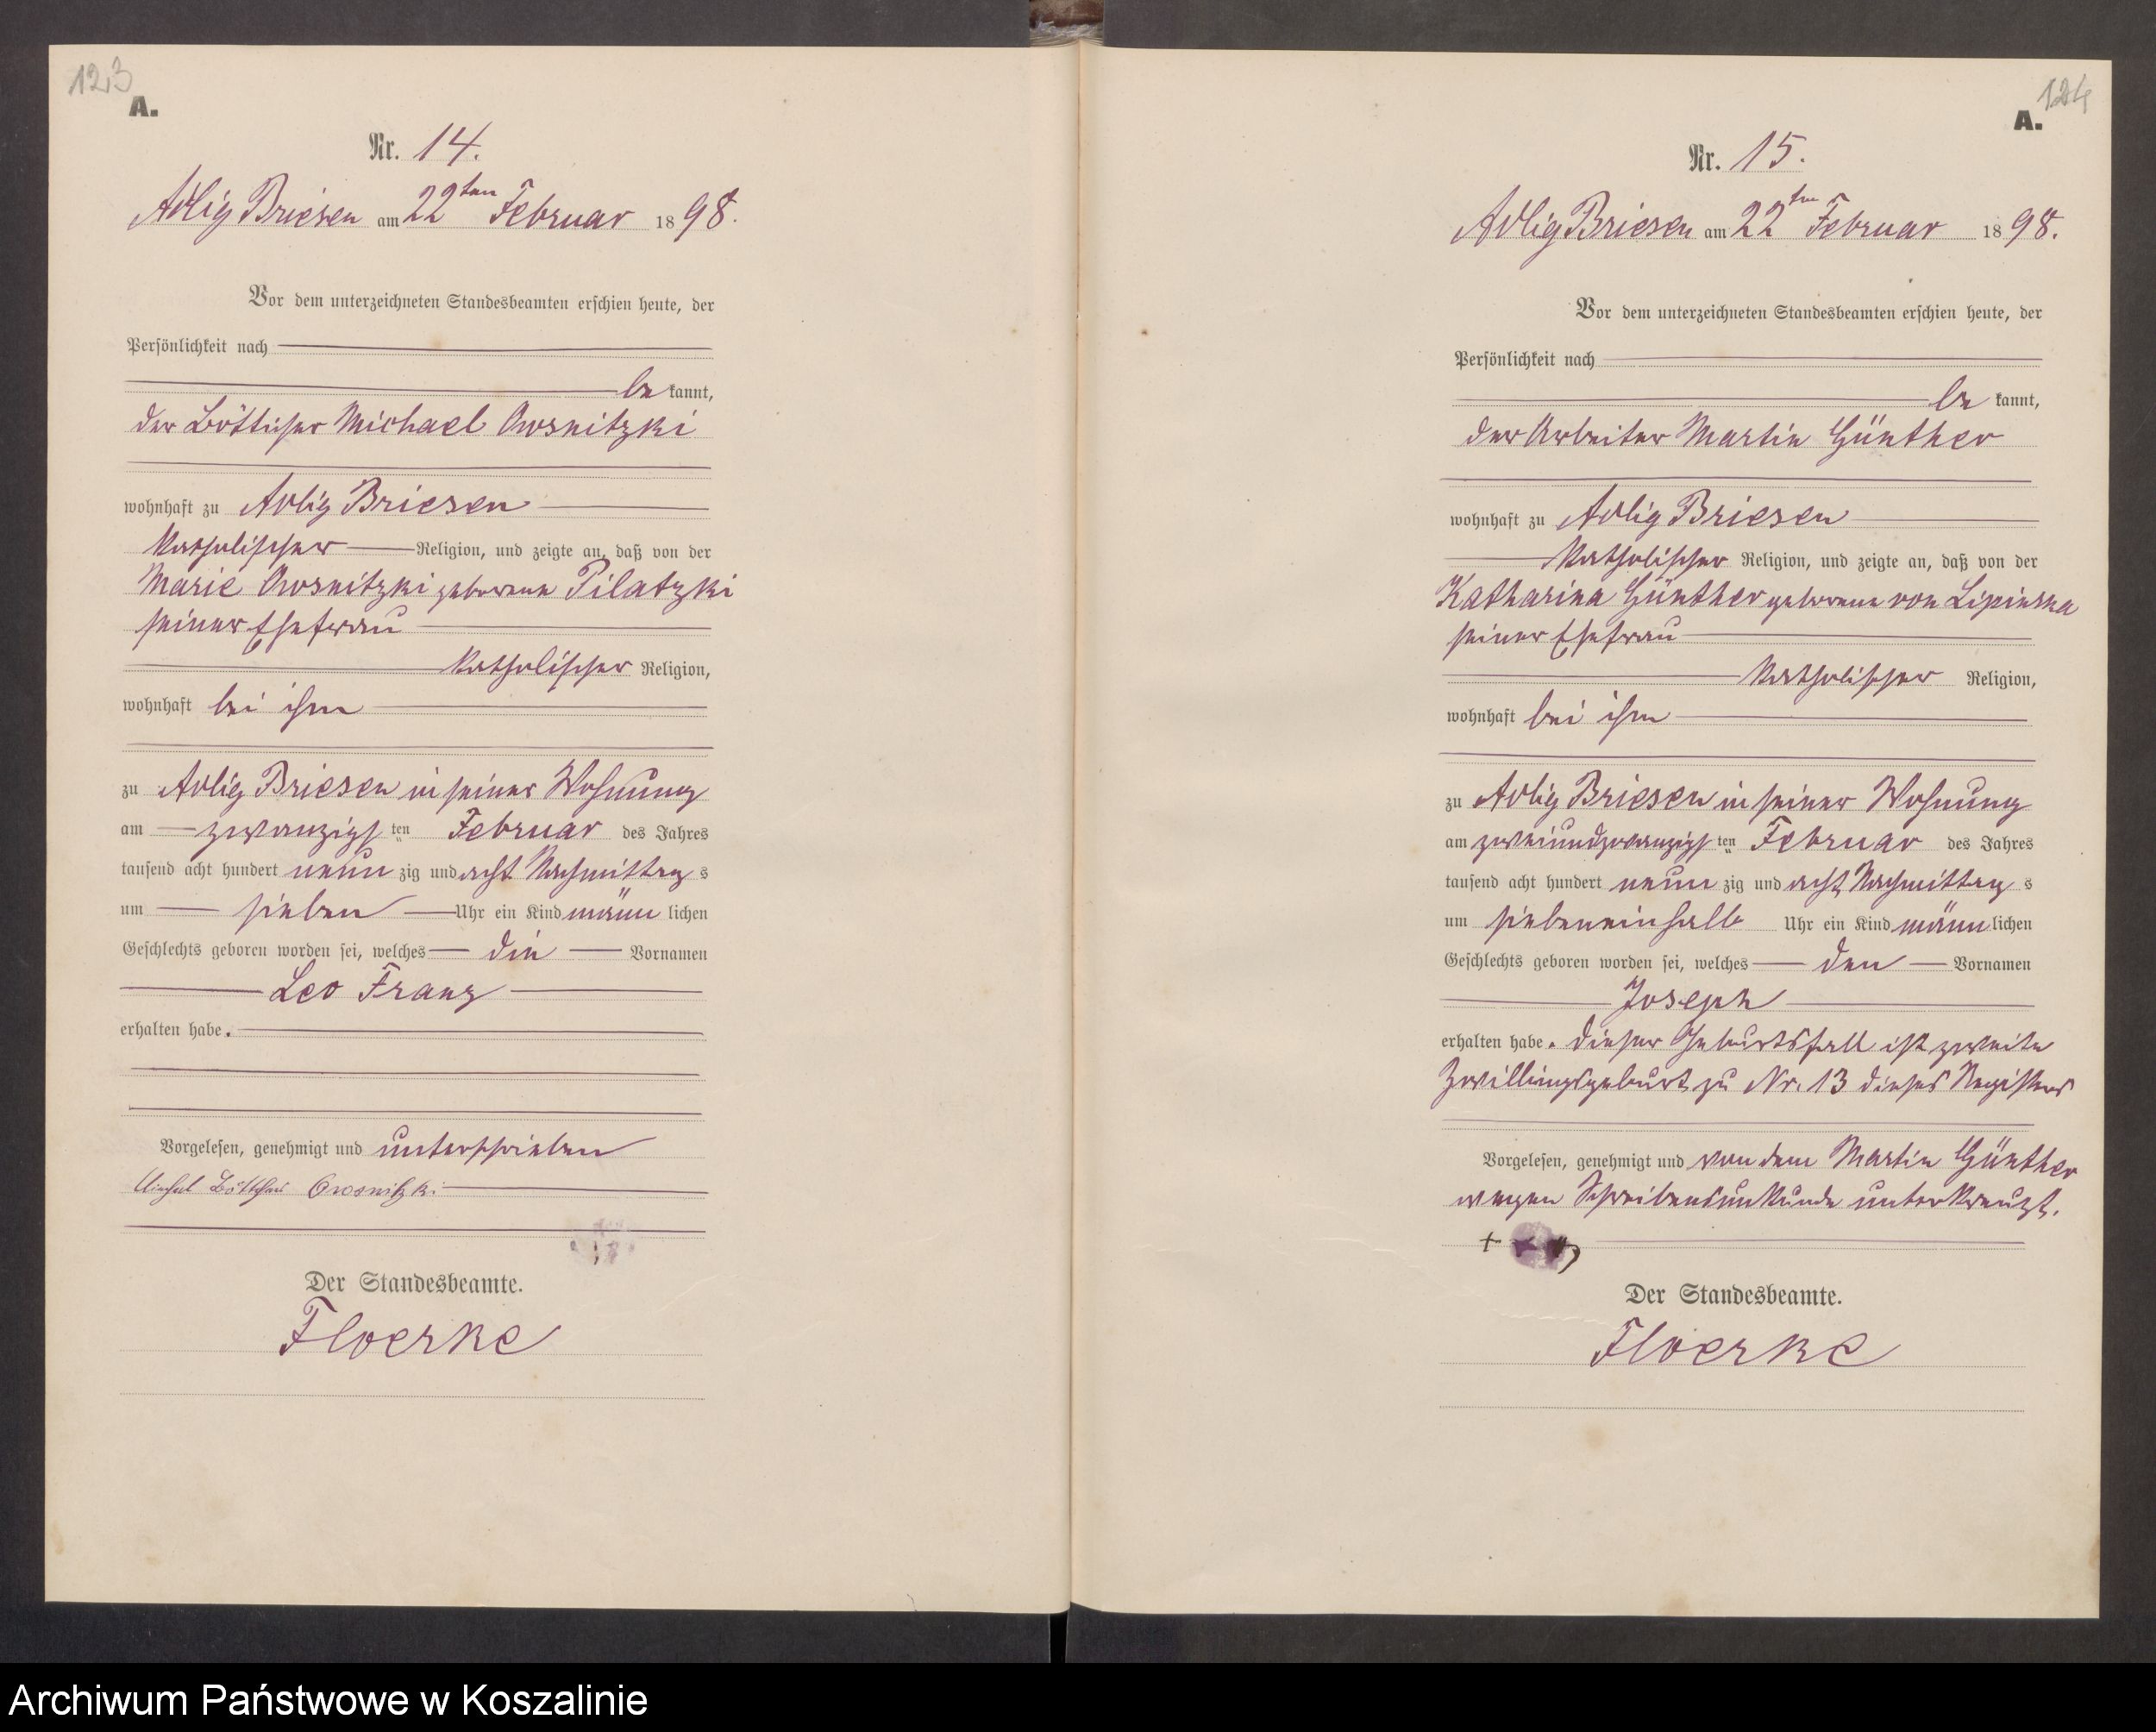 123
A.
Nr. 14.
Adlig Briesen am 22ten Februar 1898.
Vor dem unterzeichneten Standesbeamten erschien heute, der
Persönlichkeit nach
be kannt,
der Böttcher Michael Owsnitzki
wohnhaft zu Adlig Briesen
katholischer Religion, und zeigte an, daß von der
Marie Owsnitzki geborene Pilatzki
seiner Ehefrau
katholischer Religion,
wohnhaft bei ihm
zu Adlig Briesen in seiner Wohnung
am zwanzigsten Februar des Jahres
tausend acht hundert neunzig und acht Nachmittags
um sieben Uhr ein Kind männlichen
Geschlechts geboren worden sei, welches die Vornamen
Leo Franz
erhalten habe.
Vorgelesen, genehmigt und unterschrieben
Böttcher Owsnitzki
Der Standesbeamte.
Floerke
124
A.
Nr. 15.
Adlig Briesen am 22ten Februar 1898.
Vor dem unterzeichneten Standesbeamten erschien heute, der
Persönlichkeit nach
be kannt,
der Arbeiter Martin Günther
wohnhaft zu Adlig Briesen
katholischer Religion, und zeigte an, daß von der
Katharina Günther geborene von Lipinska
seiner Ehefrau
katholischer Religion,
wohnhaft bei ihm
zu Adlig Briesen in seiner Wohnung
am zweiundzwanzigsten Februar des Jahres
tausend acht hundert neunzig und acht Nachmittags
um siebeneinhalb Uhr ein Kind männlichen
Geschlechts geboren worden sei, welches den Vornamen
Joseph
erhalten habe. Dieser Geburtsfall ist zweite
Zwillingsgeburt zu Nr. 13 dieses Registers
Vorgelesen, genehmigt und von dem Martin Günther
wegen Schreibensunkunde unterkreuzt.
+ + +
Der Standesbeamte.
Floerke
Archiwum Państwowe w Koszalinie